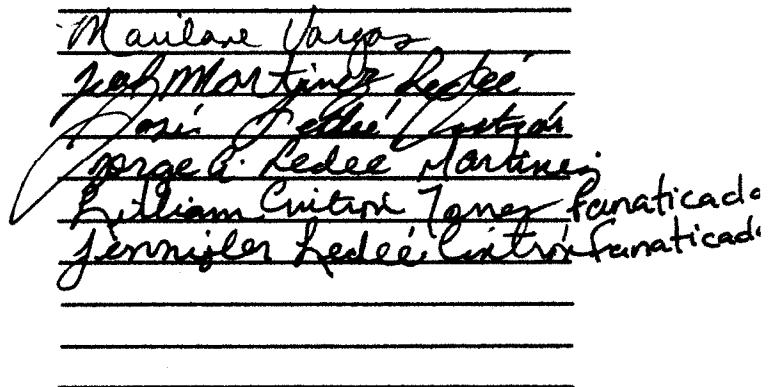 Marilane Vargas
Martinez Ledeé
José Ledeé
Jorge A. Ledeé Martinez
Lilliam Cintrón Torres fanaticada
Jennifer Ledeé Cintrón fanaticada